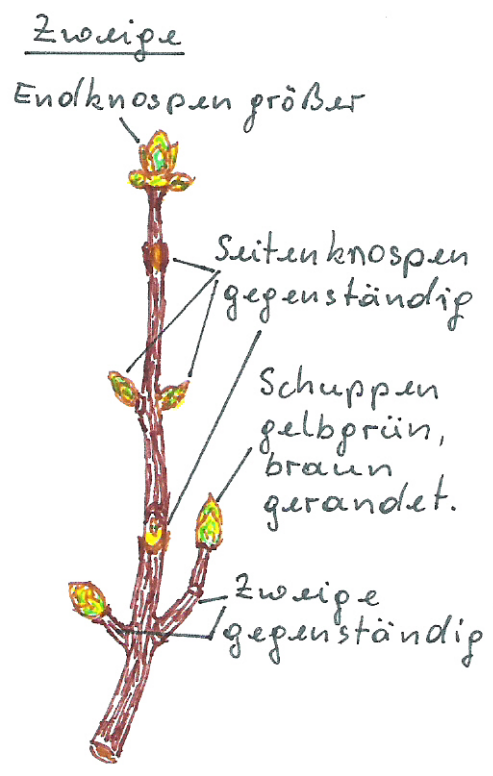 Zweige
Endknospen größer
Seitenknospen
gegenständig
Schuppen
gelbgrün,
braun
gerandet.
Zweige
gegenständig